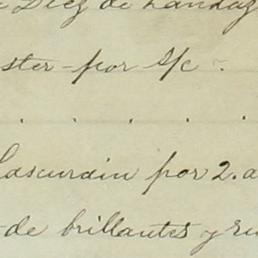 Diez de Landaz
ster por S/c
. . . .
Lascurain por 2. a
de brillantes y ru